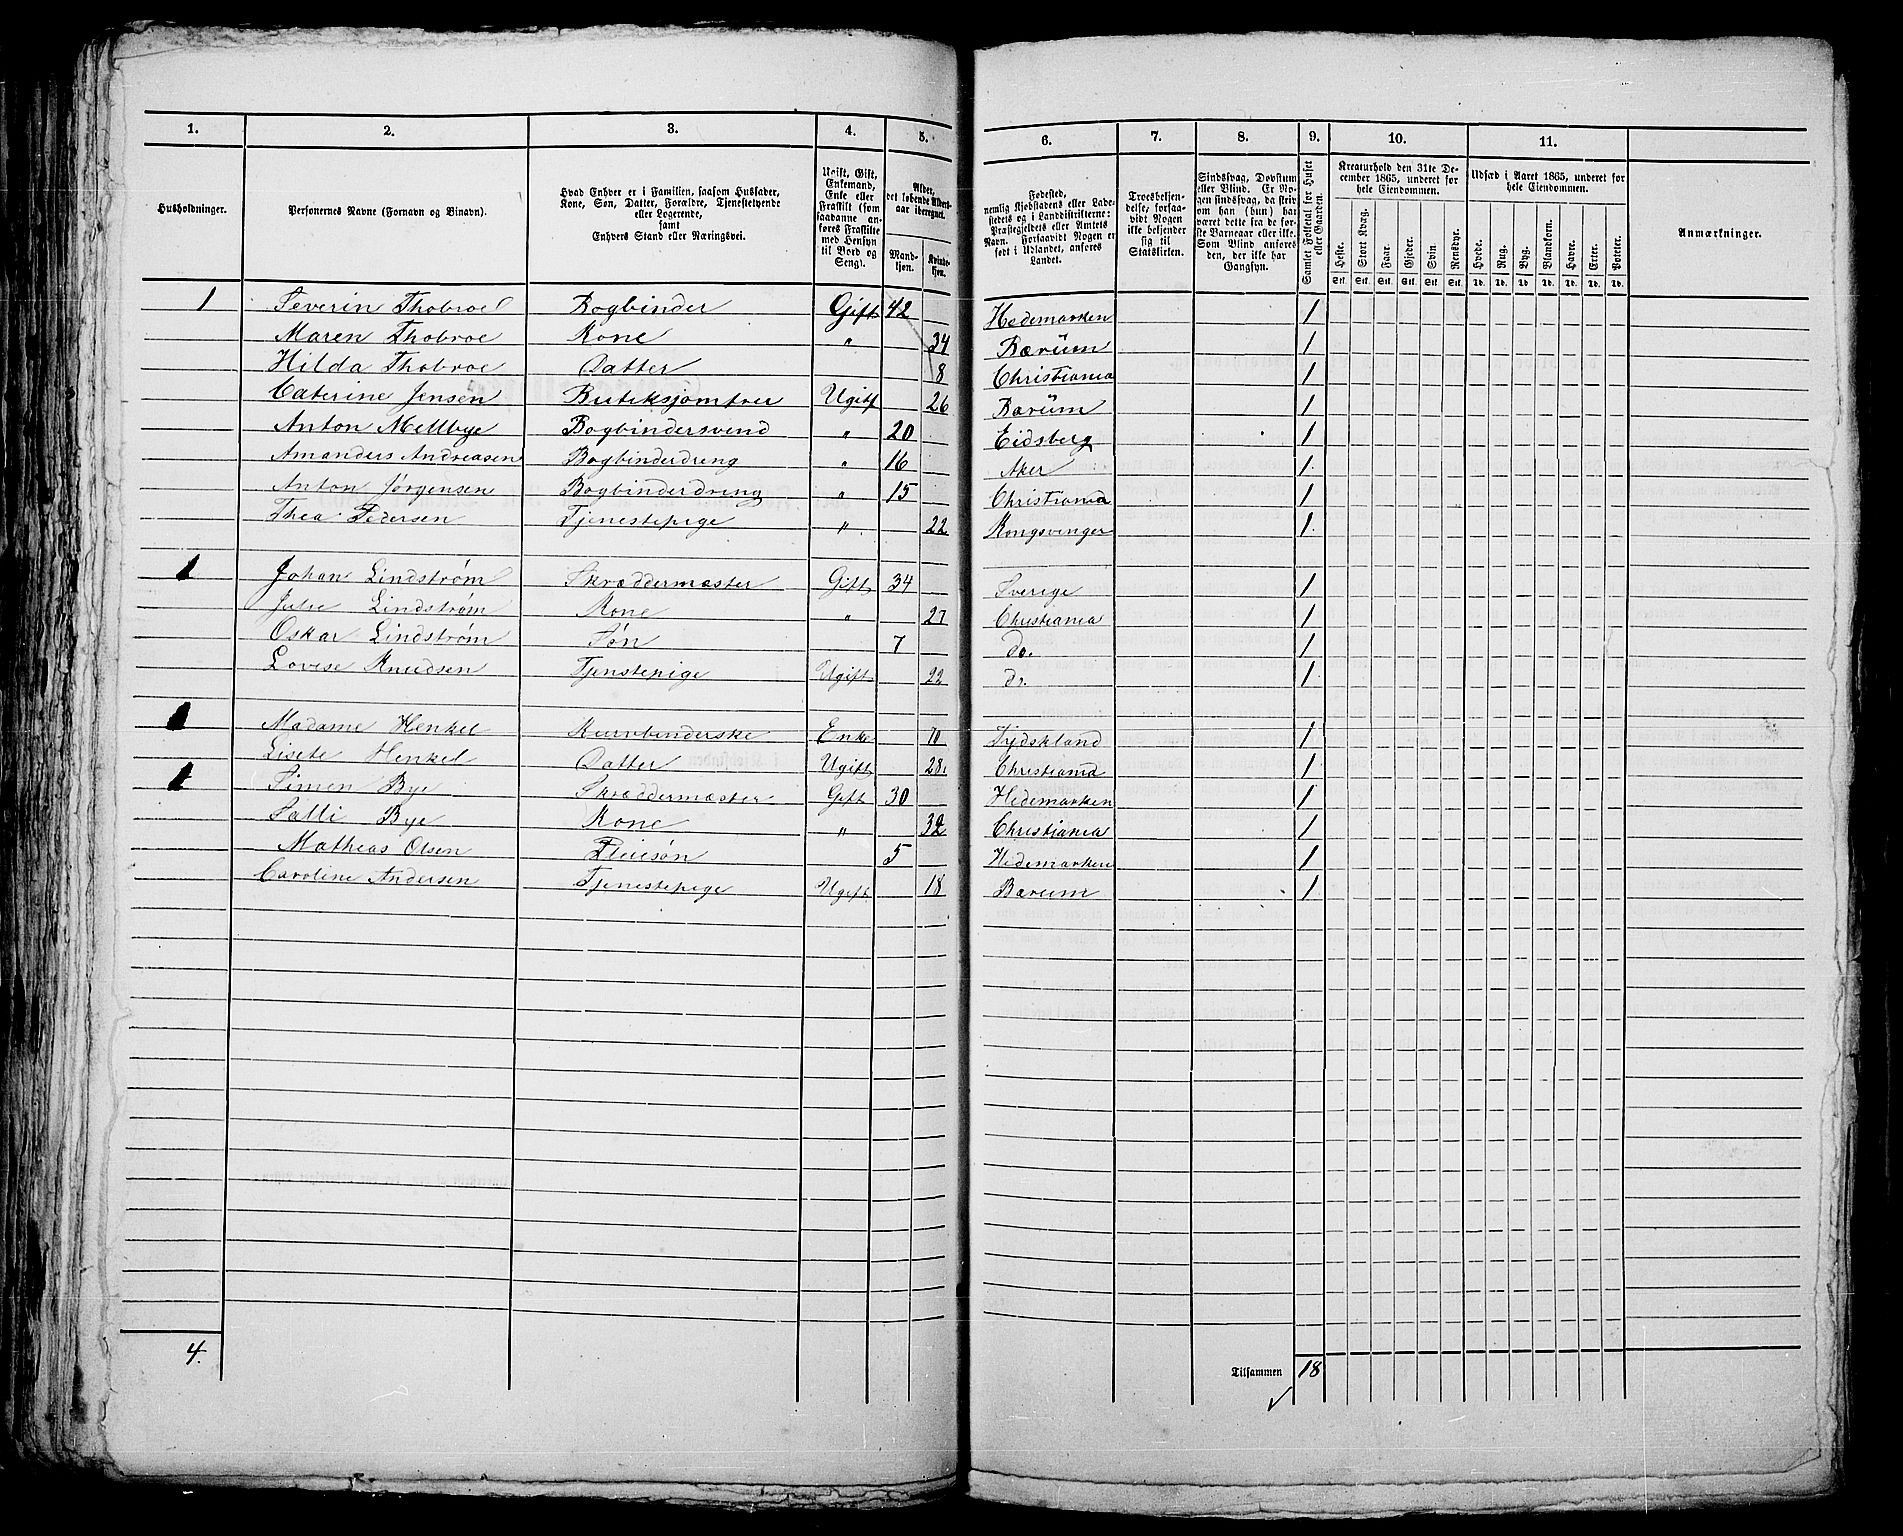 1. 2. 3. 4. 5. 6. 7. 8. 9. 10. 11.
Husholdninger.
Personernes Navne (Fornavn og Binavn).
Hvad Enhver er i Familien, saasom Husfader, Kone, Søn, Datter, Forældre, Tjenestetyende eller Logerende, samt Enhvers Stand eller Næringsvei.
Ugift, Gift, Enkemand, Enke eller Fraskilt (som saadanne anføres Fraskilte med Hensyn til Bord og Seng).
Alder, det løbende Alders­aar iberegnet.
Mandkjøn. Kvindekjøn.
Fødested, nemlig Kjøbstadens eller Ladestedets og i Landdistrikterne: Præstegjeldets eller Amtets Navn. Forsaavidt Nogen er født i Udlandet, anføres Landet.
Troesbekjendelse, forsaavidt Nogen ikke bekjender sig til Statskirken.
Sindssvag, Døvstum eller Blind. Er Nogen sindssvag, da skrives om han (hun) har været dette fra de første Barneaar eller ikke. Som Blind anføres den, der ikke har Gangsyn.
Samlet Folketal for Huset eller Gaarden.
Kreaturhold den 31te December 1865, underet for hele Eiendommen.
Heste. Stort Kvæg. Faar. Gjeder. Svin. Rensdyr.
Stk. Stk. Stk. Stk. Stk. Stk.
Udsæd i Aaret 1865, underet for hele Eiendommen.
Hvede. Rug. Byg. Blandkorn. Havre. Erter. Poteter.
Td. Td. Td. Td. Td. Td. Td.
Anmærkninger.
1 Severin Thobroe Bogbinder Gift 42 Hedemarken 1
Maren Thobroe Kone " 34 Bærüm 1
Hilda Thobroe Datter 8 Christiania 1
Caterine Jensen Butiksjomfrer Ugift 26 Bærüm 1
Anton Mellbye Bogbindersvend " 20 Eidsberg 1
Amanders Andreasen Bogbinderdreng " 16 Aker 1
Anton Jørgensen Bogbinderdreng " 15 Christiania 1
Thea Pedersen Tjenestepige " 22 Kongsvinger 1
1 Johan Lindstrøm Skræddermæster Gift 34 Sverige 1
Julie Lindstrøm Kone " 27 Christiania 1
Oskar Lindstrøm Søn 7 do. 1
Lovise Knudsen Tjenstepige Ugift 22 do. 1
1 Madame Henkel Kurvbinderske Enke 70 Tydskland 1
Lisete Henkel Datter Ugift 28 Christiania 1
1 Simen Bye Skræddermæster Gift 30 Hedemarken 1
Salli Bye Kone " 32 Christiania 1
Mathias Olsen Pleiesøn 5 Hedemarken 1
Caroline Andersen Tjenestepige Ugift 18 Bærum 1
4. Tilsammen 18